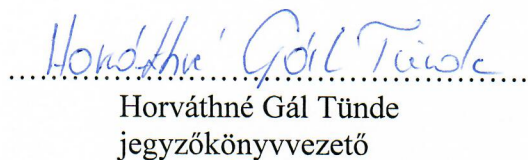 Horváthné Gál Tünde
Horváthné Gál Tünde
jegyzőkönyvvezető